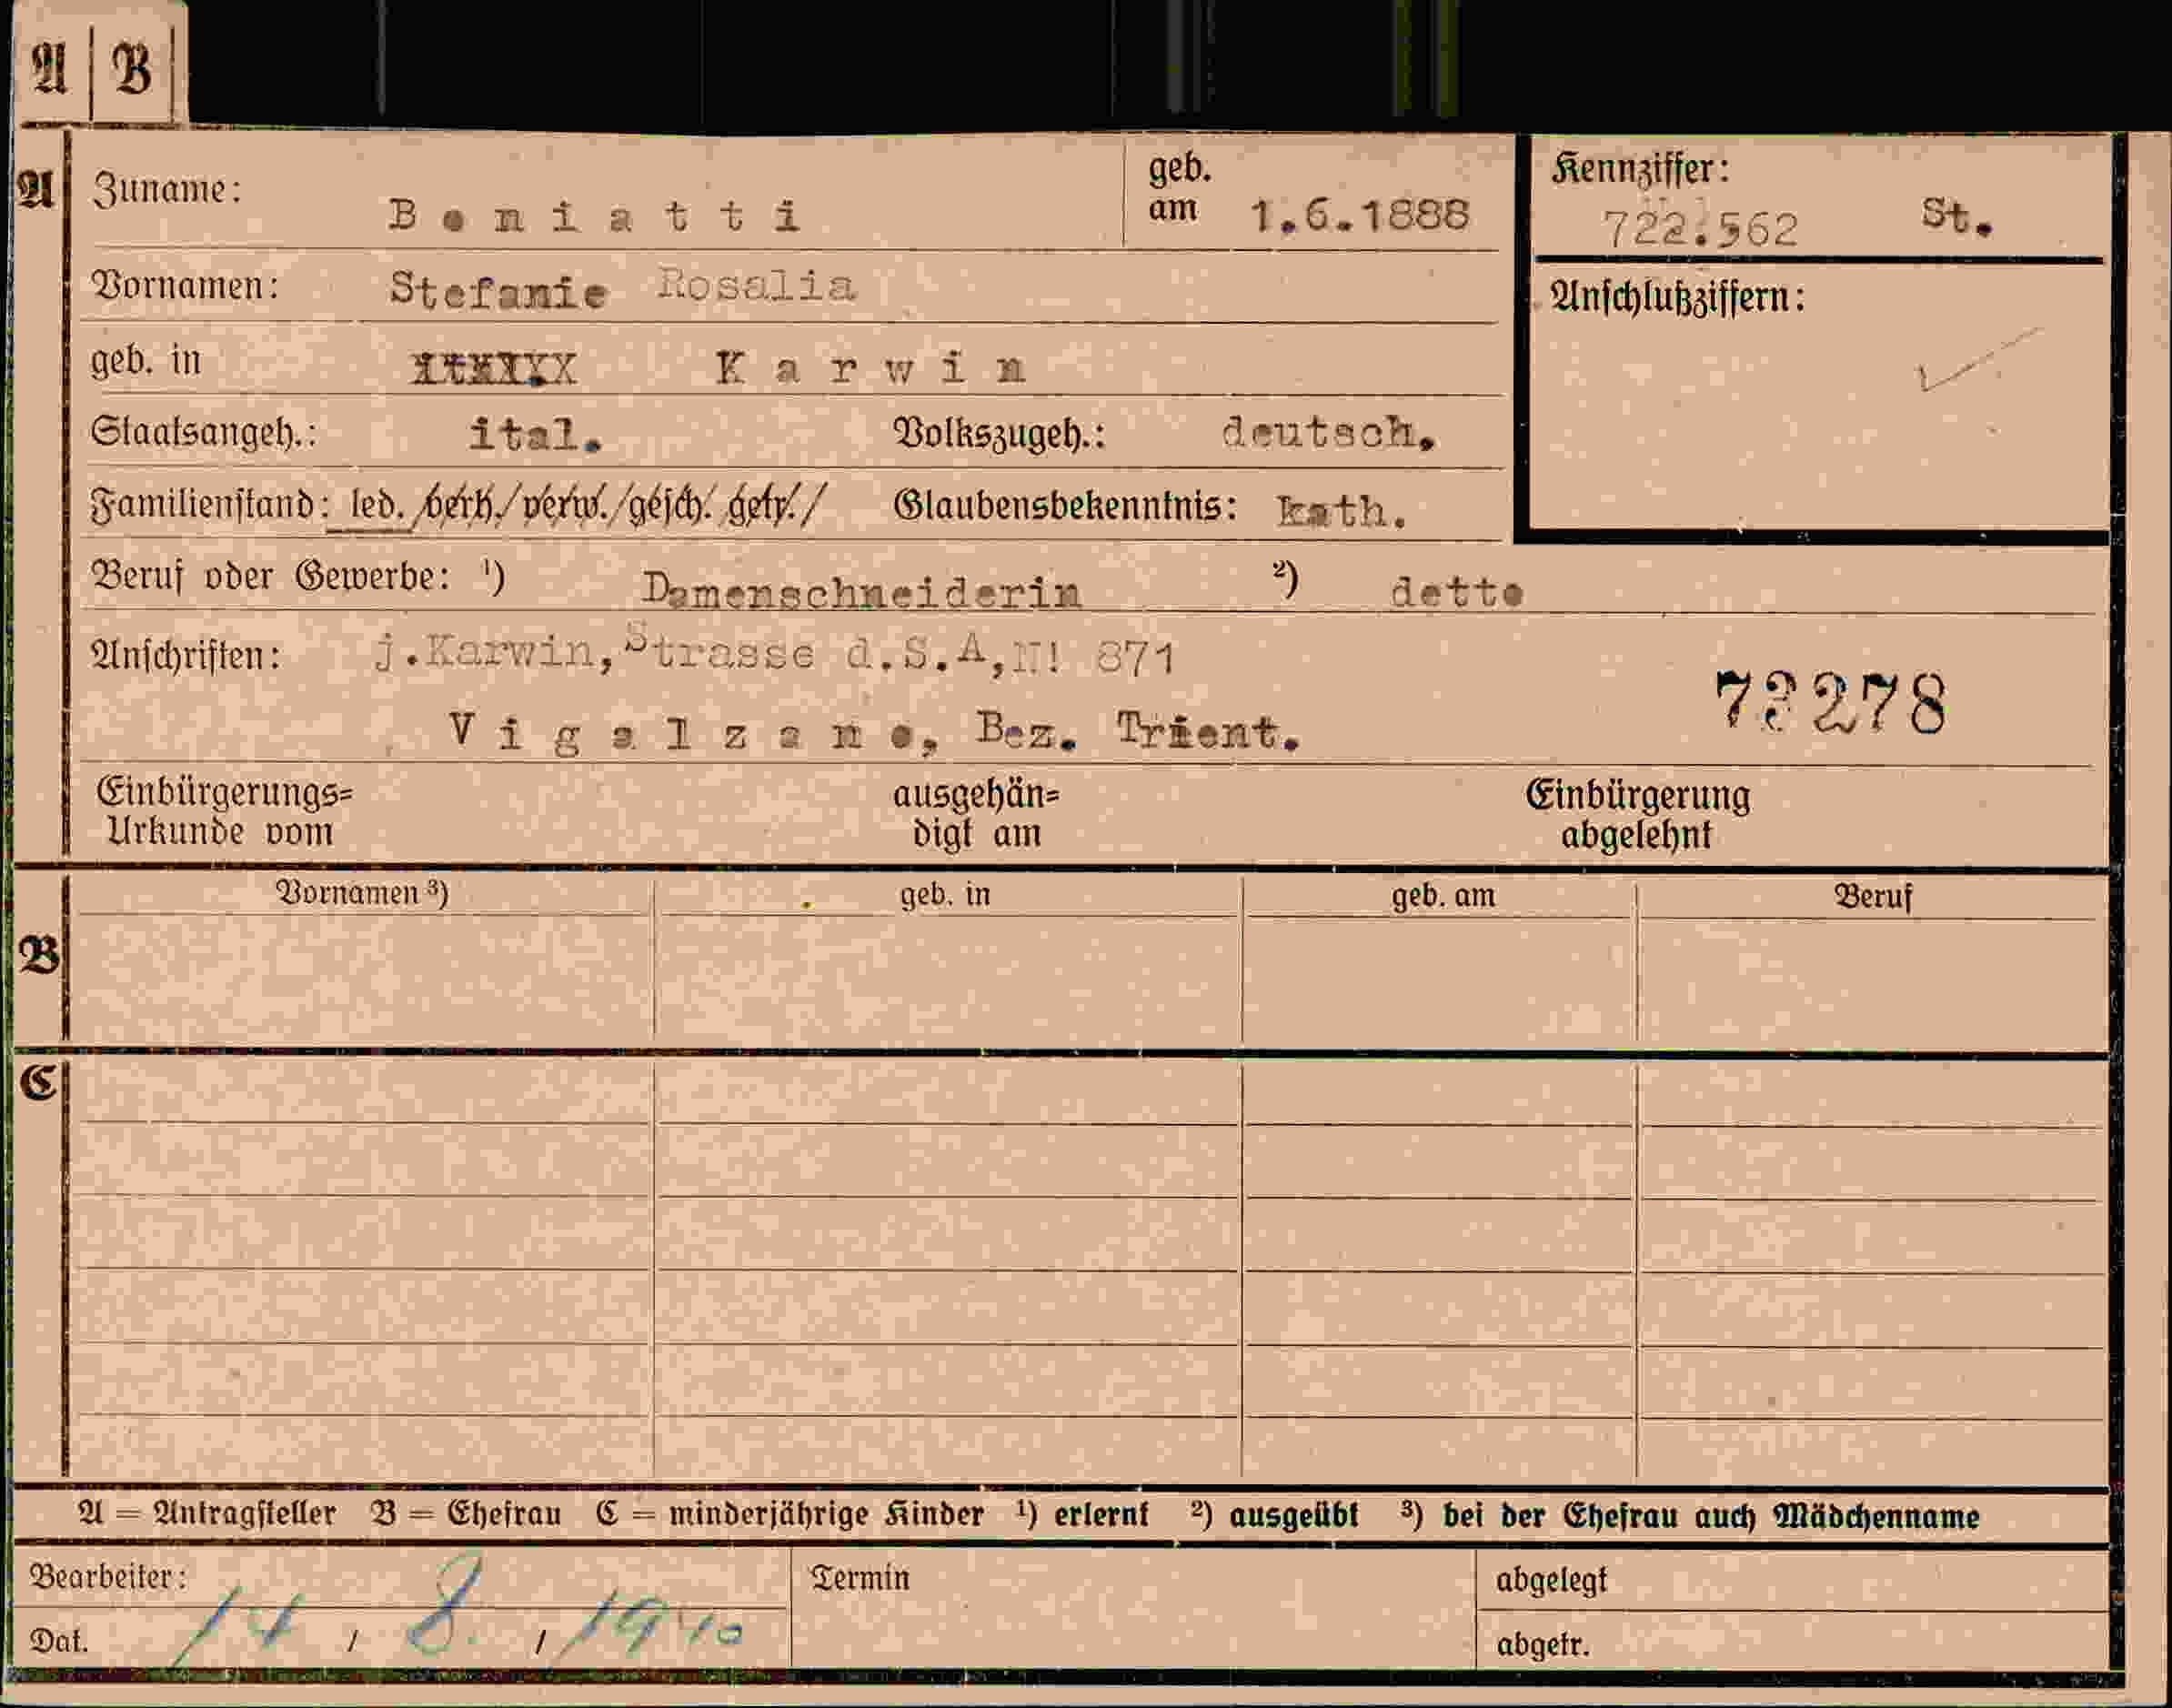 A B
A Zuname: Beniatti geb. am 1.6.1888 Kennziffer: 722.562 St.
Vornamen: Stefanie Rosalia Anschlußziffern:
geb. in Karwin
Staatsangeh.: ital. Volkszugeh.: deutsch.
Familienstand: led./verh./verw./gesch. getr./ Glaubensbekenntnis: kath.
Beruf oder Gewerbe: ¹) Damenschneiderin ²) dette
Anschriften: j.Karwin,Strasse d.S.A,N! 871
Vigalzano, Bez. Trient. 73278
Einbürgerungs= ausgehän= Einbürgerung
Urkunde vom digt am abgelehnt
Vornamen ³) geb. in geb. am Beruf
B
C
A = Antragsteller B = Ehefrau C = minderjährige Kinder ¹) erlernt ²) ausgeübt ³) bei der Ehefrau auch Mädchenname
Bearbeiter: Termin abgelegt
Dat. 14 / 8. / 1940 abgetr.